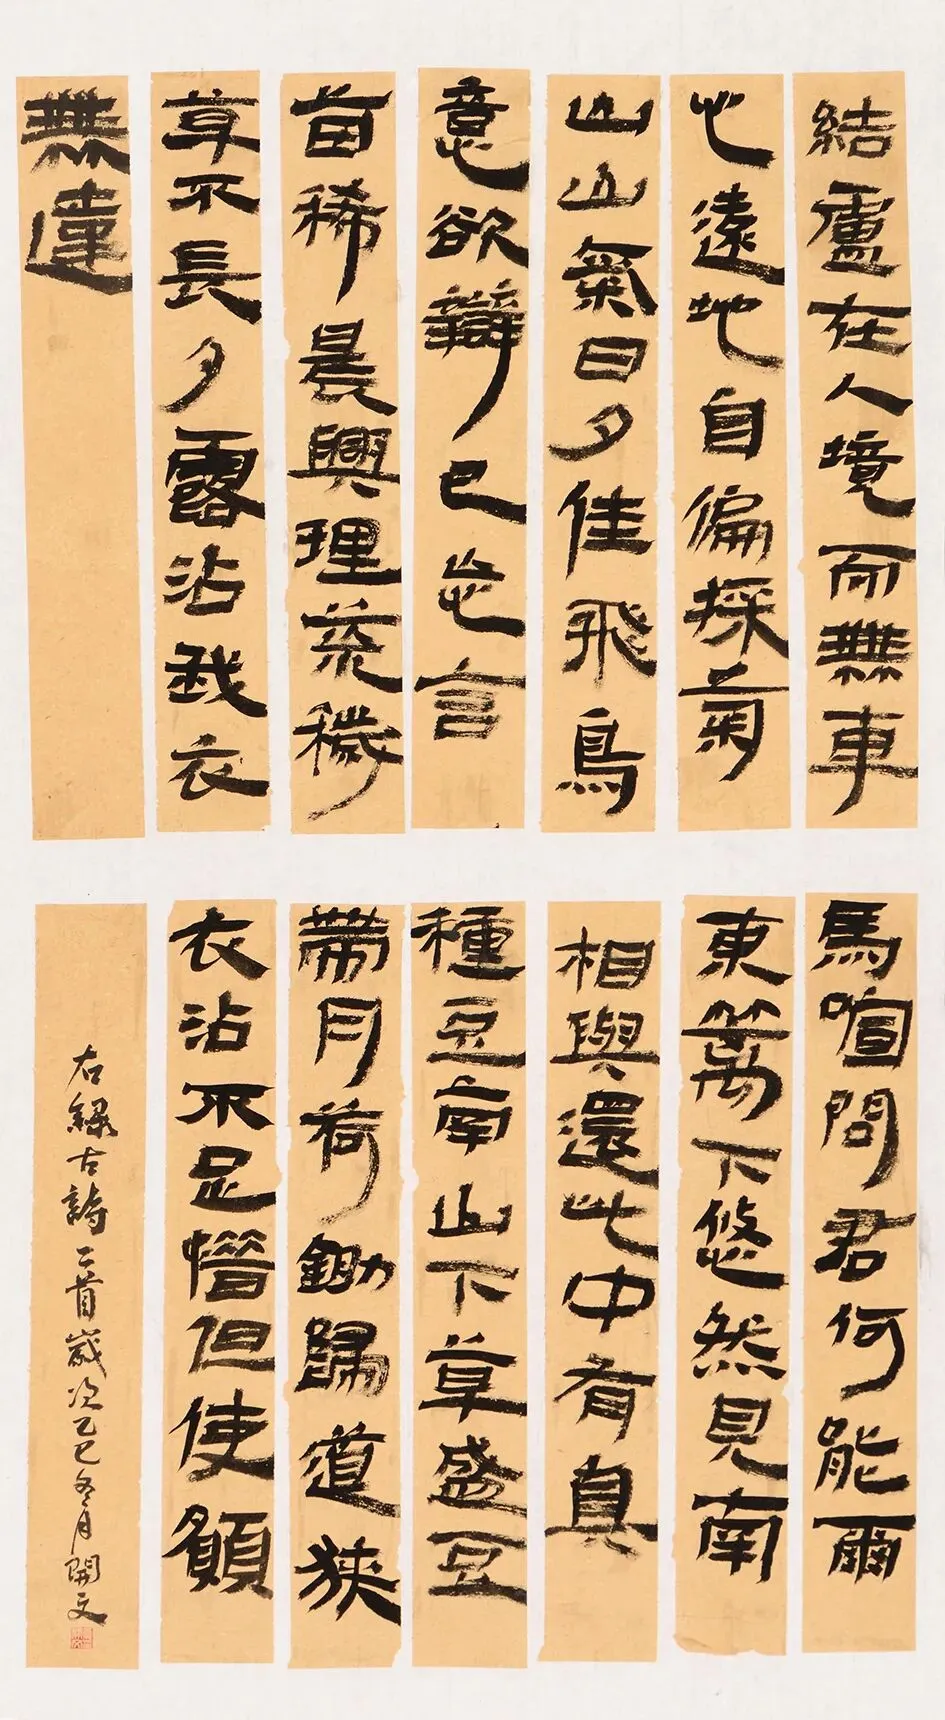 結盧在人境而無車
馬喧問君何能爾
心遠地自偏採菊
東篱下悠然見南
山山氣日夕佳飛鳥
相與還此中有真
意欲辯已忘言
種豆南山下草盛豆
苗稀晨興理荒穢
帶月荷鋤歸道狹
草木長夕露沾我衣
衣沾不足惜但使願
無違
右錄古詩二首歲次乙巳冬月開文